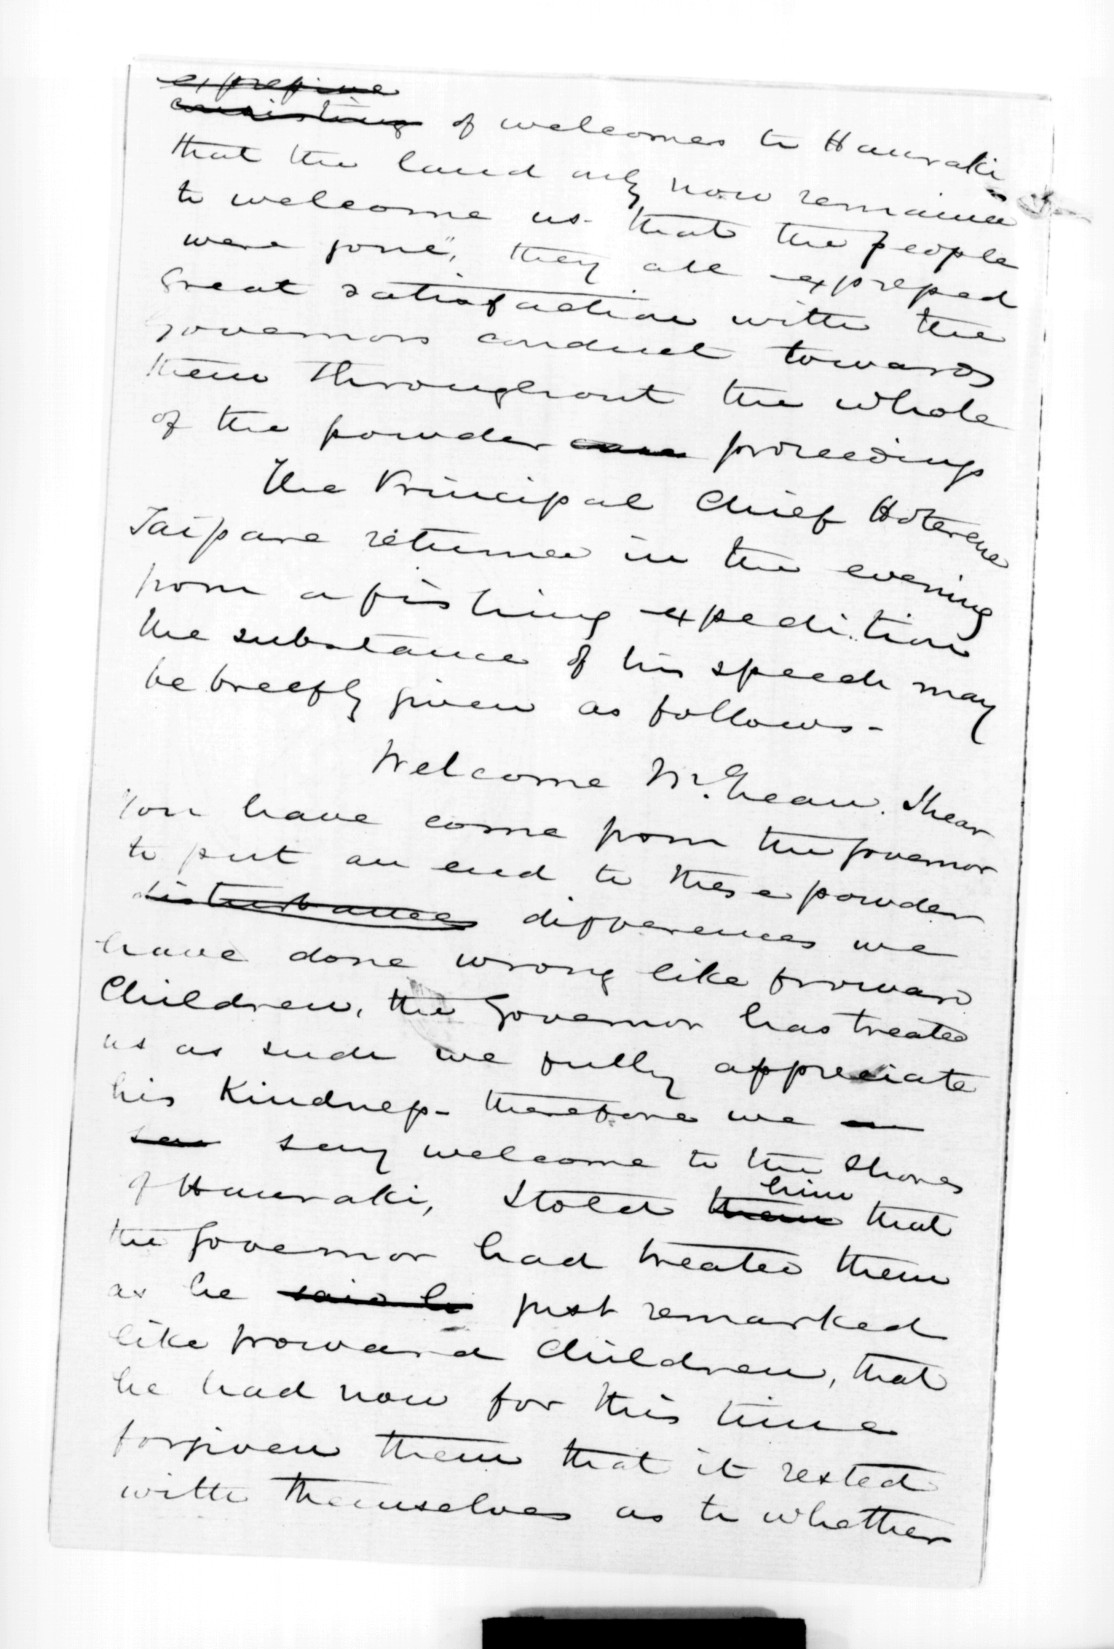 expressive
consisting of welcomes to Hauraki
that the land only now remained
to welcome us. that the people
were gone", they all expressed
great satisfaction with the
Governors conduct towards
them throughout the whole
of the powder proceedings
The Principal Chief Hoterene
Taipare returned in the evening
from a fishing expedition
the substance of his speech may
be breefly given as follows-
Welcome McLean. I hear
You have come from the Governor
to put an end to these powder
disturbances differences we
have done wrong like froward
Children, the Governor has treated
us as such we fully appreciate
his Kindness- therefore we
say welcome to the Shores
him
of Hauraki, I told them that
the Governor had treated them
as he said he just remarked
like froward Children, that
he had now for this time
forgiven them that it rested
with themselves as to whether